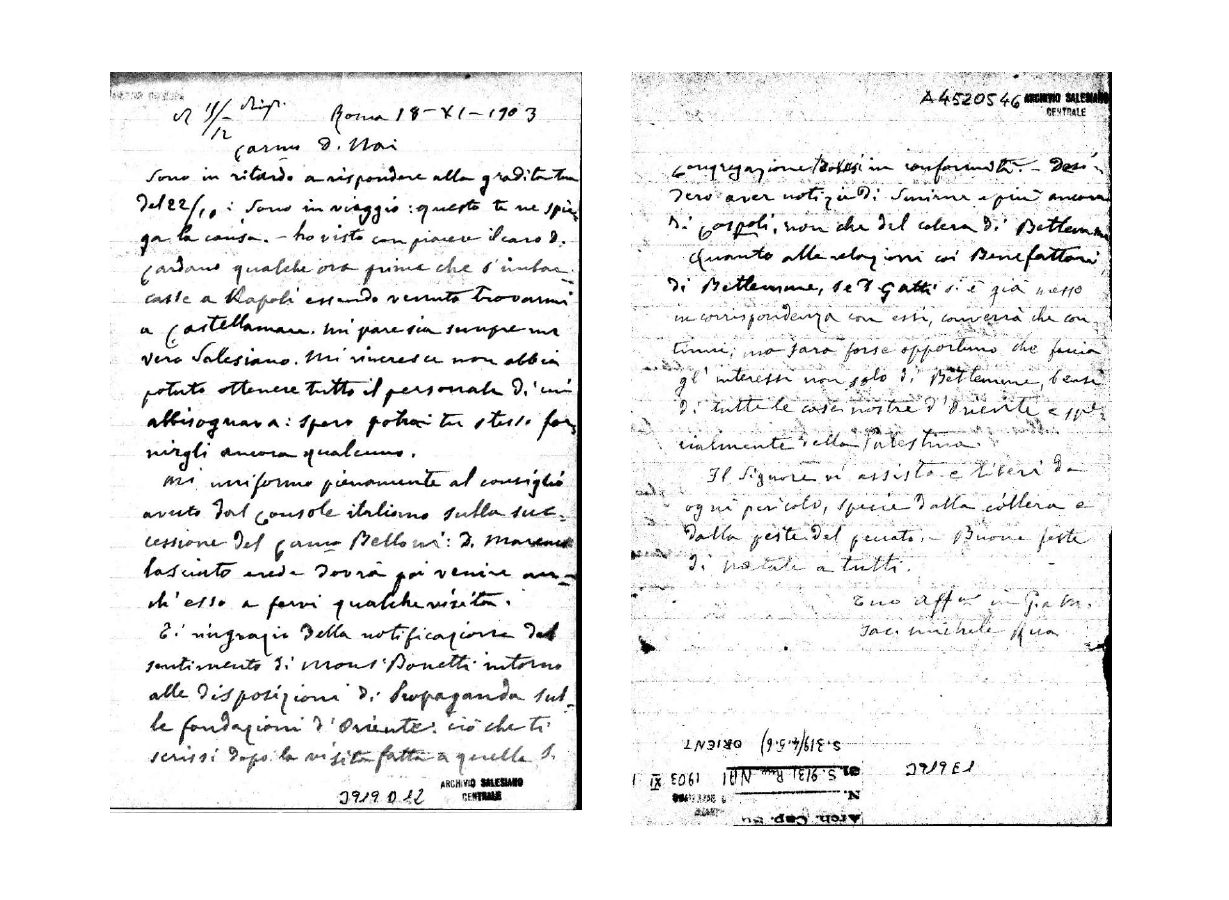 R 11/12 Risp.
Roma 18-XI-1903
Carmo D. Nai
Sono in ritardo a rispondere alla gradita tua
del 22/10: Sono in viaggio: questo te ne spie-
ga la causa. - ho visto con piacere il caro D.
Cardano qualche ora prima che s'imbar-
casse a Napoli essendo venuto trovarmi
a Castellamare. Mi pare sia sempre un
vero Salesiano. Mi rincresce non abbia
potuto ottenere tutto il personale di cui
abbisognava: spero potrai tu stesso for-
nirgli ancora qualcuno.
Mi uniformo pienamente al consiglio
avuto dal Console italiano sulla suc-
cessione del Carmo Belloni: D. Marenco
lasciato erede dovrà poi venire an-
ch'esso a farvi qualche visita.
Ti ringrazio della notificazione del
sentimento di Mons. Bonetti intorno
alle disposizioni di Propaganda sul-
le fondazioni d'Oriente: ciò che ti
scrissi dopo la visita fatta a quella S.
3919 D 12
ARCHIVIO SALESIANO
CENTRALE
A4520546
ARCHIVIO SALESIANO
CENTRALE
Congregazione in conformità. - Desi-
dero aver notizie di Smirne e più ancora
di Cospoli, non che del colera di Betlemme
Quanto alle relazioni coi Benefattori
di Betlemme, se D Gatti si è già messo
in corrispondenza con essi, converrà che con
tinui; ma sarà forse opportuno che faccia
gl'interessi non solo di Betlemme, bensì
di tutte le case nostre d'Oriente e spe-
cialmente della Palestina.
Il Signore vi assista e liberi da
ogni pericolo, specie dalla cóllera e
dalla peste del peccato. - Buone feste
di natale a tutti.
Tuo affmo in G. e M.
Sac. Michele Rua
3919 E1
S.319(4.5.6) ORIENT
S. 9131 Rua NAI 1903 XI
N.
Arch. Cap. Su